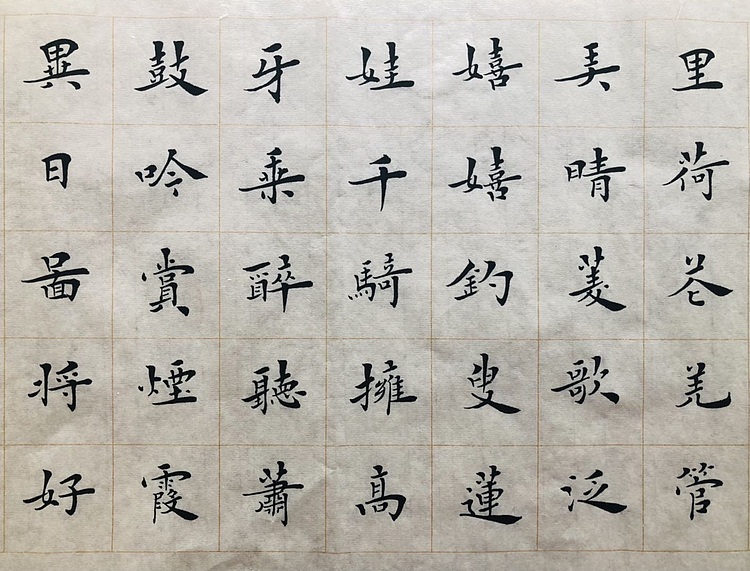 里荷花羌管
弄晴菱歌泛
嬉嬉釣叟蓮
娃千騎擁高
牙乗醉聽蕭
鼓吟賞煙霞
異日啚将好